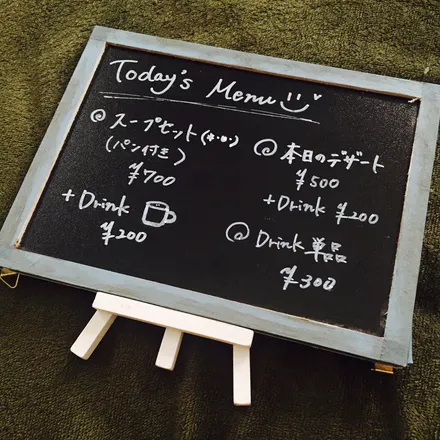 Today's Menu
◎ スープセット(*・・)
(パン付き)
¥700
+ Drink
¥200
◎ 本日のデザート
¥500
+ Drink ¥200
◎ Drink 単品
¥300